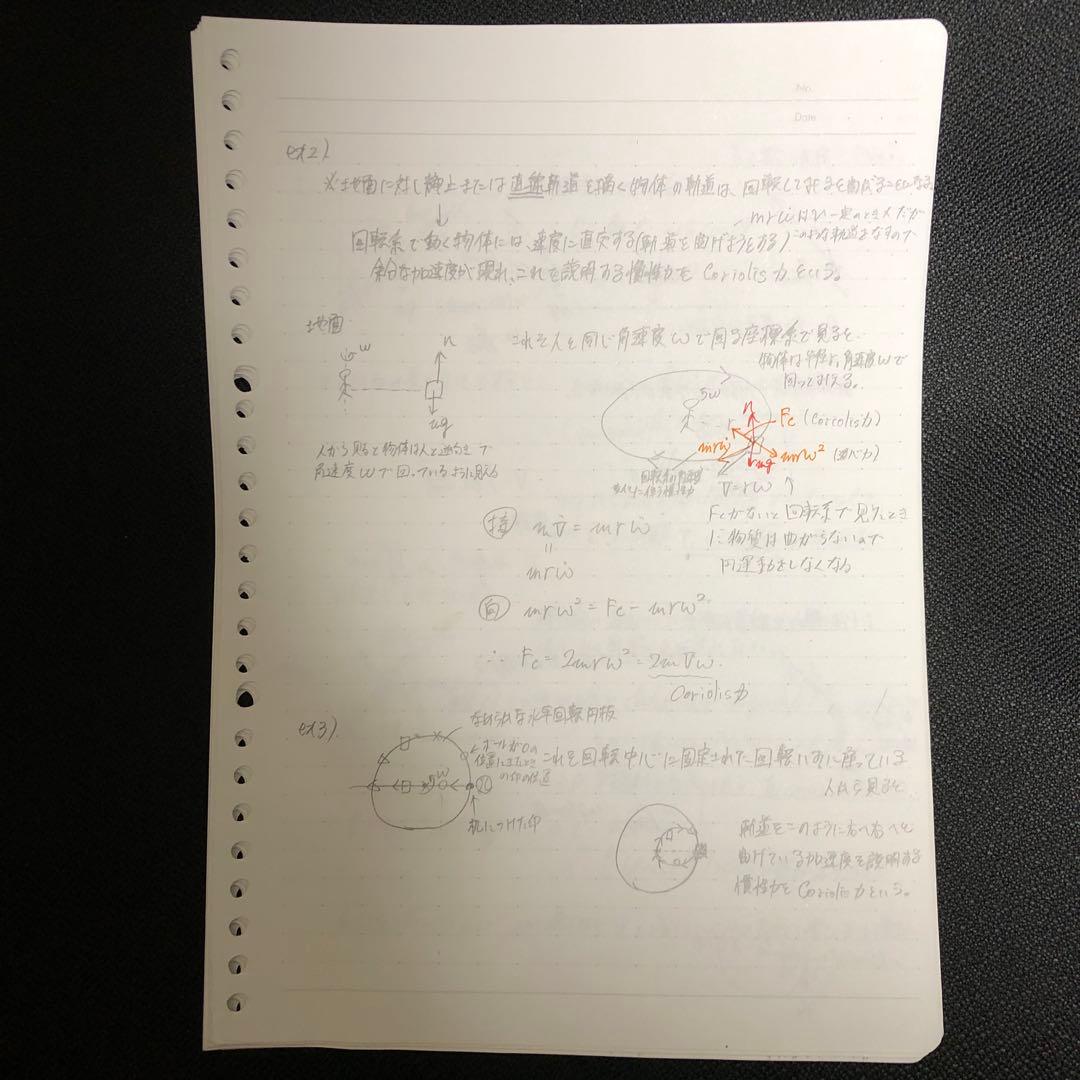 No.
Date
ex2).
※地面に対し静止または直線軌道を描く物体の軌道は、回転して見ると曲がることになる。
mrω̇はv一定のとき
このような軌道をなすので
回転系で動く物体には、速度に直交する(軌道を曲げようとする)
余分な加速度が現れ、これを説明する慣性力をCoriolis力という。
地面
これを人と同じ角速度ωで回る座標系で見ると、
物体は半径r、角速度ωで
回ってみえる。
ω
n
mg
人から見ると物体は人と逆向きで
角速度ωで回っているように見える
ω
r
n
Fc (Coriolis力)
mrω̇
mrω² (遠心力)
mg
v=rω
回転系の角速度
変化に伴う慣性力
Fcがないと回転系で見たとき
に物質は曲がらないので
円運動をしなくなる
接 mv̇ = mrω̇
mrω̇
向 mrω² = Fc − mrω²
∴ Fc = 2mrω² = 2mvω.
Coriolis力
ex3).
なめらかな水平回転円板
ボールが○の
位置にきたとき
の印の位置
ω
机につけた印
これを回転中心に固定された回転いすに座っている
人から見ると、
軌道をこのように右へ右へと
曲げている加速度を説明する
慣性力をCoriolis力という。